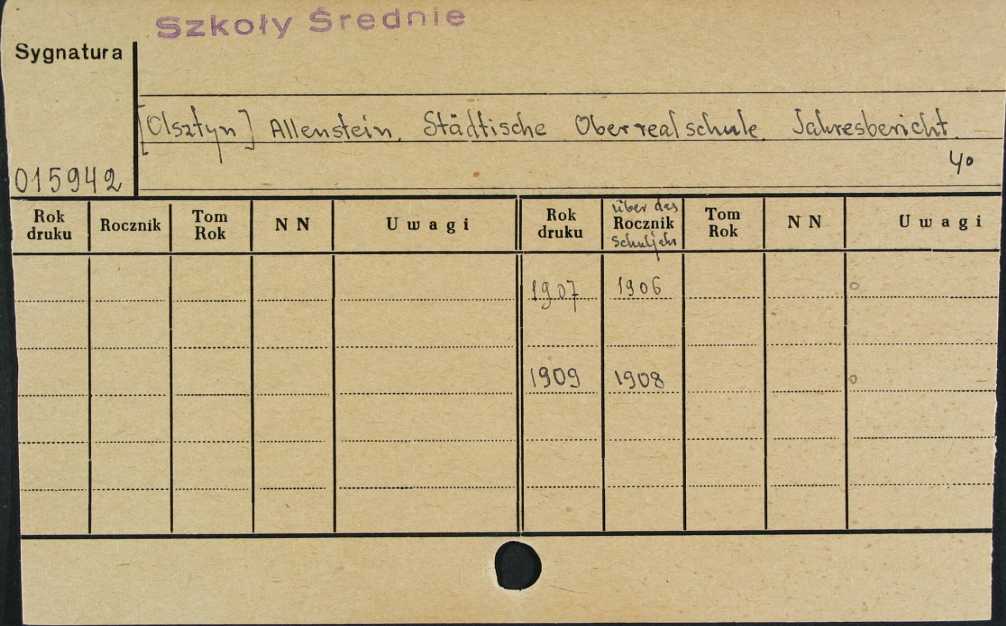 Szkoły Średnie
Sygnatura
[Olsztyn] Allenstein. Städtische Oberrealschule. Jahresbericht.
4°
015942
Rok druku Rocznik Tom Rok NN Uwagi Rok druku über das Rocznik Schuljahr Tom Rok NN Uwagi
1907 1906
1909 1908